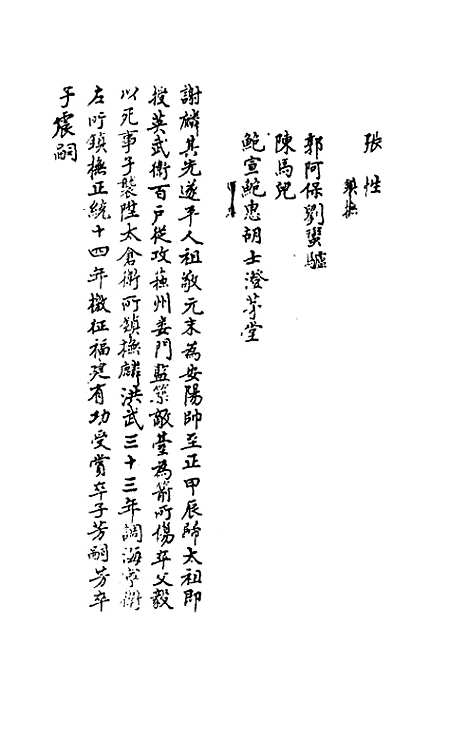 張性
郭阿保劉蠻驢
陳馬兒
鮑宣鮑忠胡士澄茅堂
謝麟其先遂平人祖敬元末為安陽帥至正甲辰歸太祖即
授英武衛百戶從攻蘓州婁門監築敵臺為箭所傷卒父毅
以死事子襲陞太倉衛所鎮撫麟洪武三十三年調海寧衛
左所鎮撫正統十四年檄征福建有功受賞卒子芳嗣芳卒
子震嗣